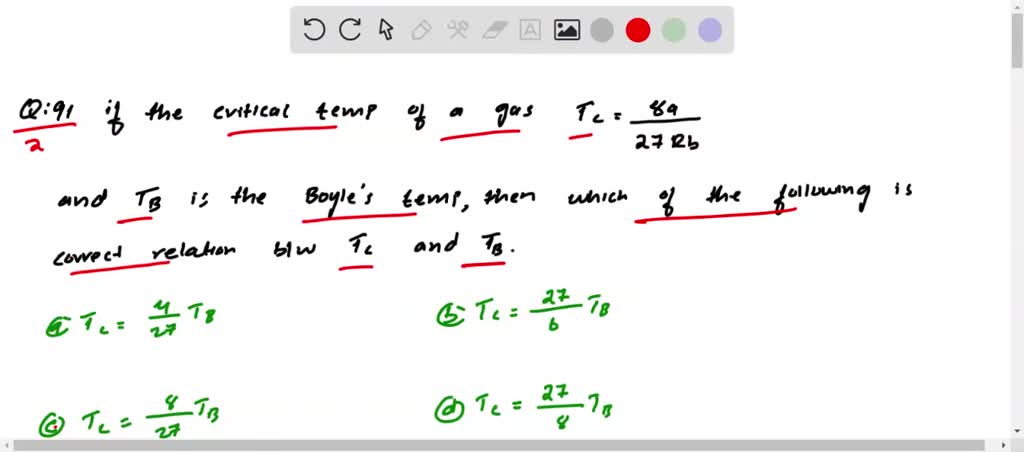 Q:91 if the critical temp of a gas Tc = 8a / 27 Rb
2
and TB is the Boyle's temp, then which of the following is
correct relation b/w Tc and TB.
(a) Tc = 4/27 TB (b) Tc = 27/6 TB
(c) Tc = 8/27 TB (d) Tc = 27/8 TB